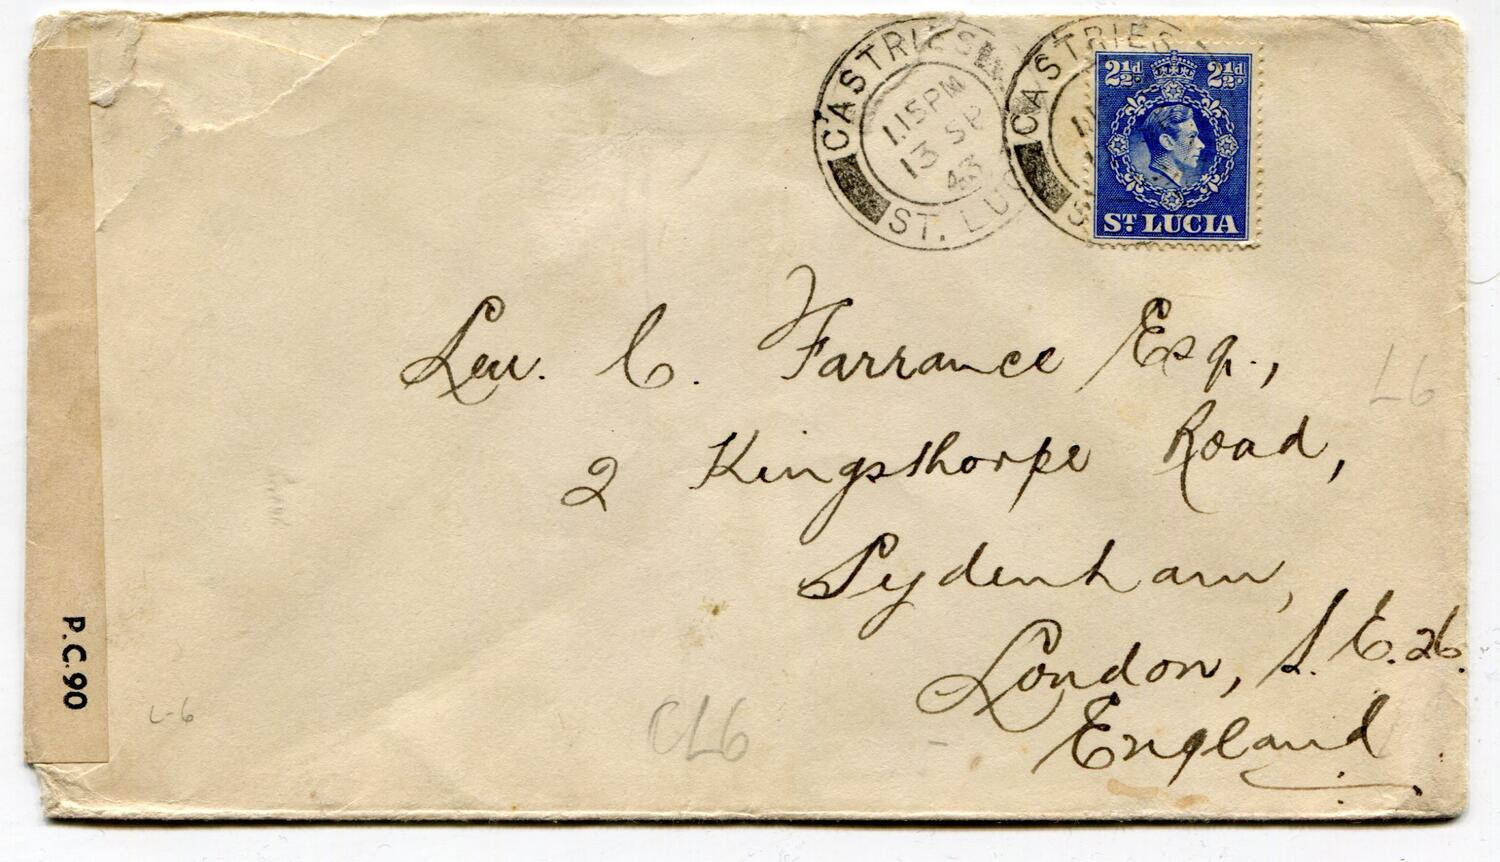 CASTRIES
1.15PM
13 SP
43
ST. LUC
CASTRIES
2½d 2½d
ST. LUCIA
Lew. C. Farrance Esq.,
2 Kingsthorpe Road,
Sydenham,
London, S.E.26.
England
P.C.90
L6
L-6
CL6